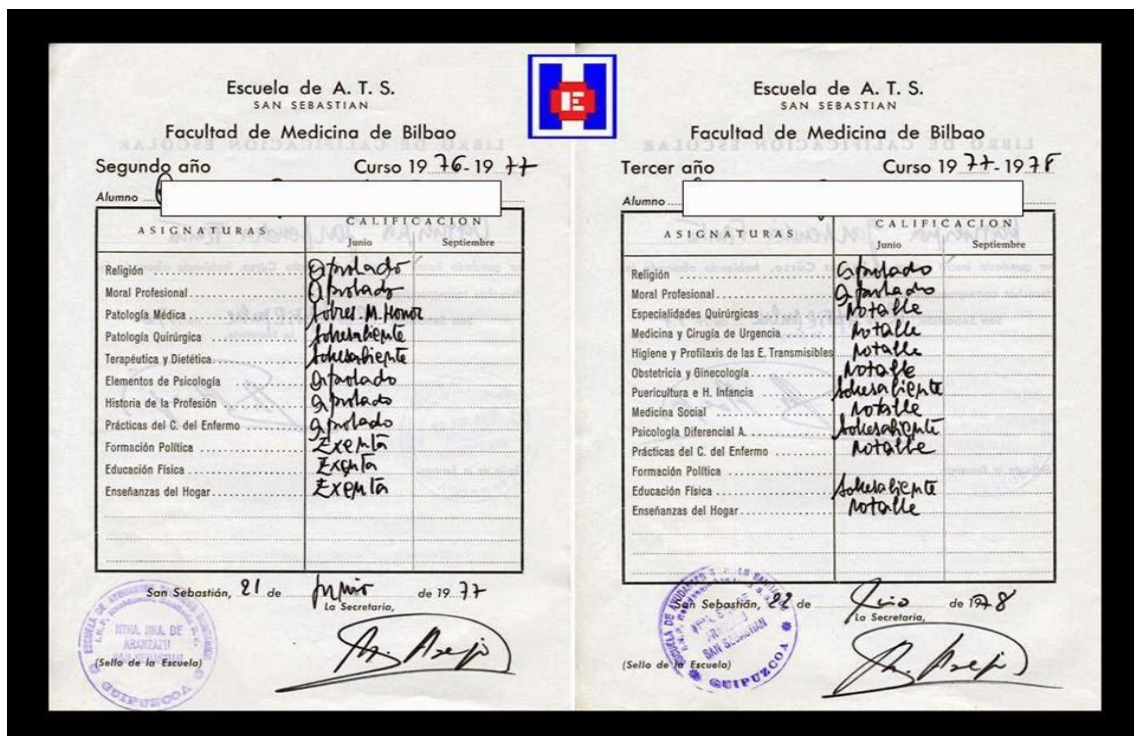 Escuela de A. T. S.
SAN SEBASTIAN
Facultad de Medicina de Bilbao
Segundo año Curso 1976-1977
Alumno
ASIGNATURAS CALIFICACION
Junio Septiembre
Religión aprobado
Moral Profesional aprobado
Patología Médica Sobres. M. Honor
Patología Quirúrgica Sobresaliente
Terapéutica y Dietética Sobresaliente
Elementos de Psicología aprobado
Historia de la Profesión aprobado
Prácticas del C. del Enfermo aprobado
Formación Política Exenta
Educación Física Exenta
Enseñanzas del Hogar Exenta
San Sebastián, 21 de Junio de 1977
La Secretaria,
(Sello de la Escuela)
NTRA. SRA. DE
ARANZAZU
SAN SEBASTIAN
GUIPUZCOA
H
E
Escuela de A. T. S.
SAN SEBASTIAN
Facultad de Medicina de Bilbao
Tercer año Curso 1977-1978
Alumno
ASIGNATURAS CALIFICACION
Junio Septiembre
Religión aprobado
Moral Profesional aprobado
Especialidades Quirúrgicas Notable
Medicina y Cirugía de Urgencia Notable
Higiene y Profilaxis de las E. Transmisibles Notable
Obstetricia y Ginecología Notable
Puericultura e H. Infancia Sobresaliente
Medicina Social Notable
Psicología Diferencial A. Sobresaliente
Prácticas del C. del Enfermo Notable
Formación Política
Educación Física Sobresaliente
Enseñanzas del Hogar Notable
San Sebastián, 22 de de 1978
La Secretaria,
(Sello de la Escuela)
SAN SEBASTIAN
GUIPUZCOA